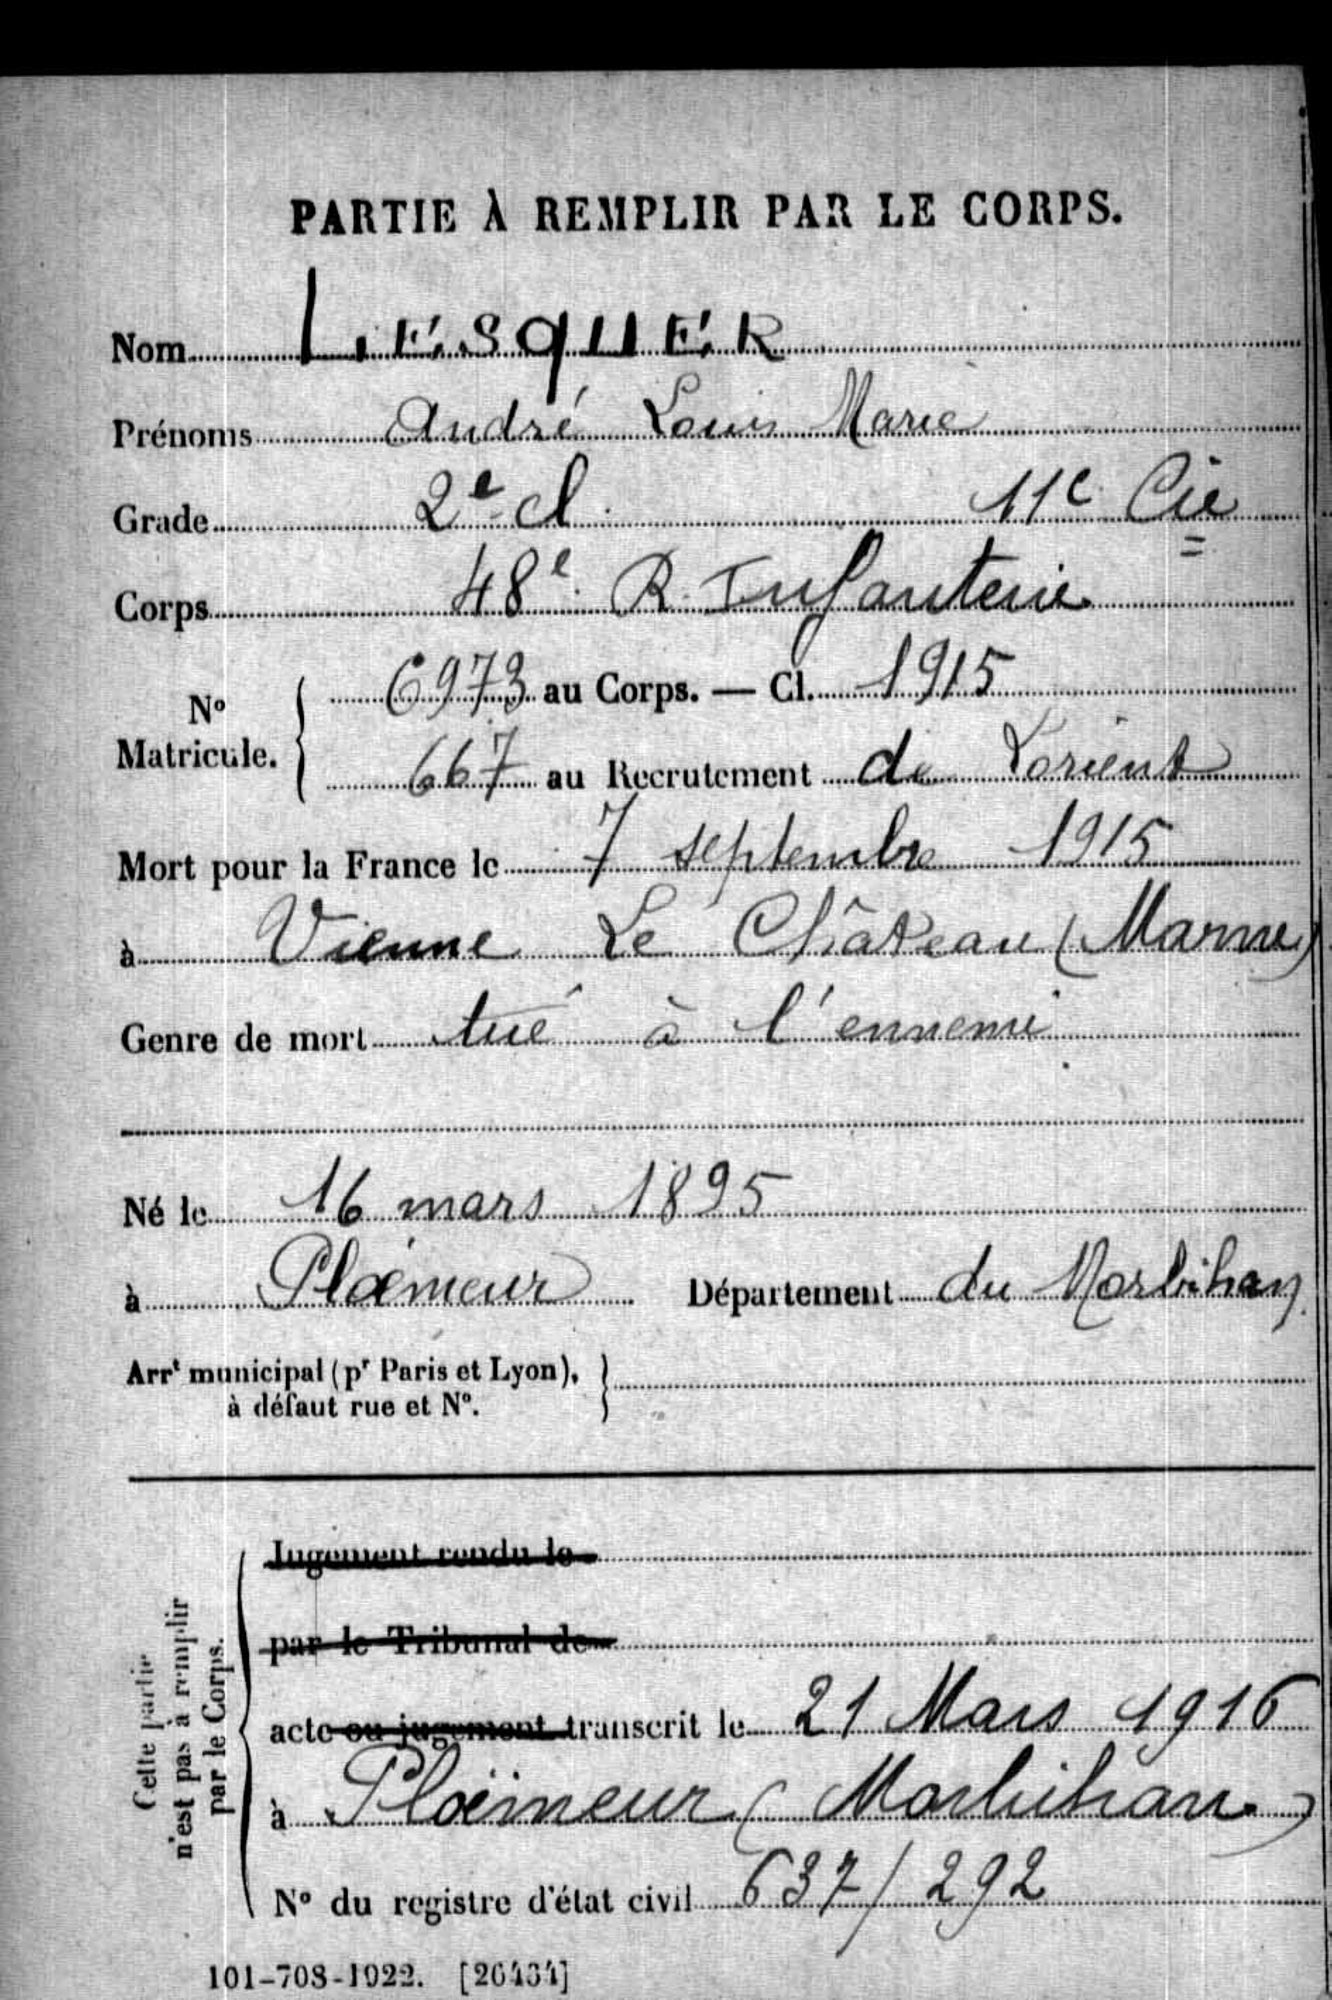 PARTIE À REMPLIR PAR LE CORPS.
Nom LIESQUER
Prénoms André Louis Marie
Grade 2e cl 11e Cie
Corps 48e R. Infanterie
No Matricule. 6973 au Corps. — Cl. 1915
667 au Recrutement de Lorient
Mort pour la France le 7 septembre 1915
à Vienne Le Château (Marne)
Genre de mort tué à l'ennemi
Né le 16 mars 1895
à Ploemeur Département du Morbihan
Arrt municipal (pr Paris et Lyon),
à défaut rue et No.
Cette partie
n'est pas à remplir
par le Corps.
Jugement rendu le
par le Tribunal de
acte ou jugement transcrit le 21 Mars 1916
à Ploëmeur (Morbihan)
No du registre d'état civil 637/292
101-708-1922. [26434]